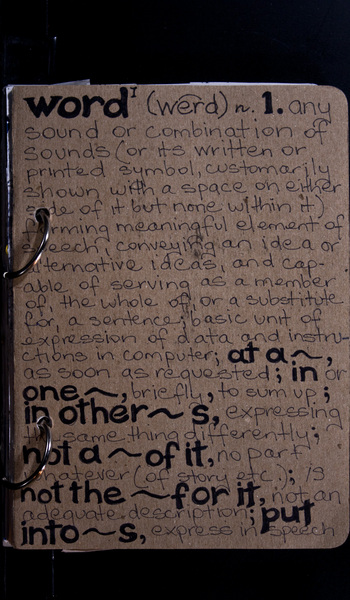 word¹ (wẽrd) n. 1. any
sound or combination of
sounds (or its written or
printed symbol, customarily
shown with a space on either
side of it but none within it)
forming meaningful element of
speech, conveying an idea or
alternative ideas, and cap-
able of serving as a member
of, the whole of, or a substitute
for, a sentence; basic unit of
expression of data and instru-
ctions in computer; at a ~,
as soon as requested; in or
one ~, briefly, to sum up;
in other ~ s, expressing
the same thing differently;
not a ~ of it, no part
whatever (of story etc.); is
not the ~ for it, not an
adequate description; put
into ~ s, express in speech